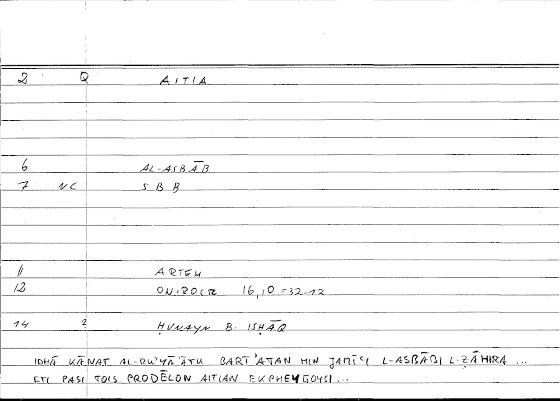 2 Q AITIA
6 AL-ASBĀB
7 NC SBB
11 ARTEM
12 ONIROCR 16,10=32.12
14 2 ḤUNAYN B. ISḤĀQ
IDHĀ KĀNAT AL-RU'YĀ 'ĀTU BARĪ'ATAN MIN JAMĪ'I L-ASBĀBI L-ẒĀHIRA ...
ETI PASI TOIS PRODĒLON AITIAN EKPHEYGOYSI ...